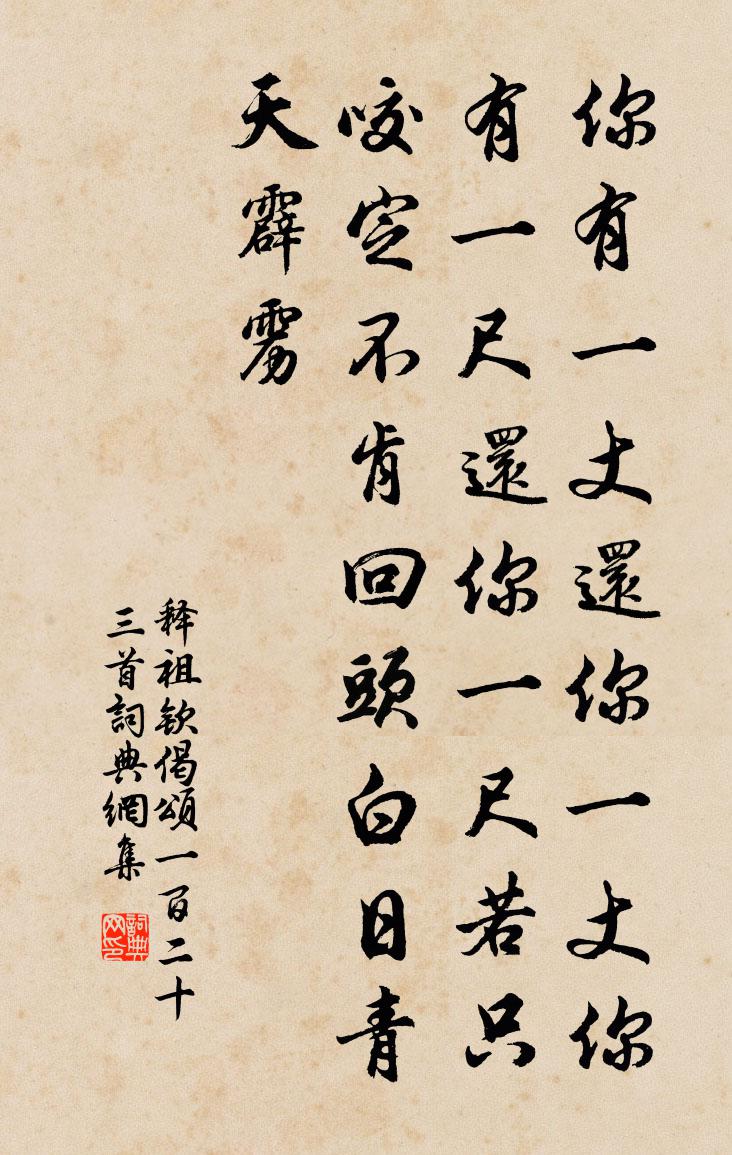 你有一丈還你一丈你
有一尺還你一尺若只
咬定不肯回頭白日青
天霹雳
释祖欽偈頌一百二十
三首詞典網集
詞典网印